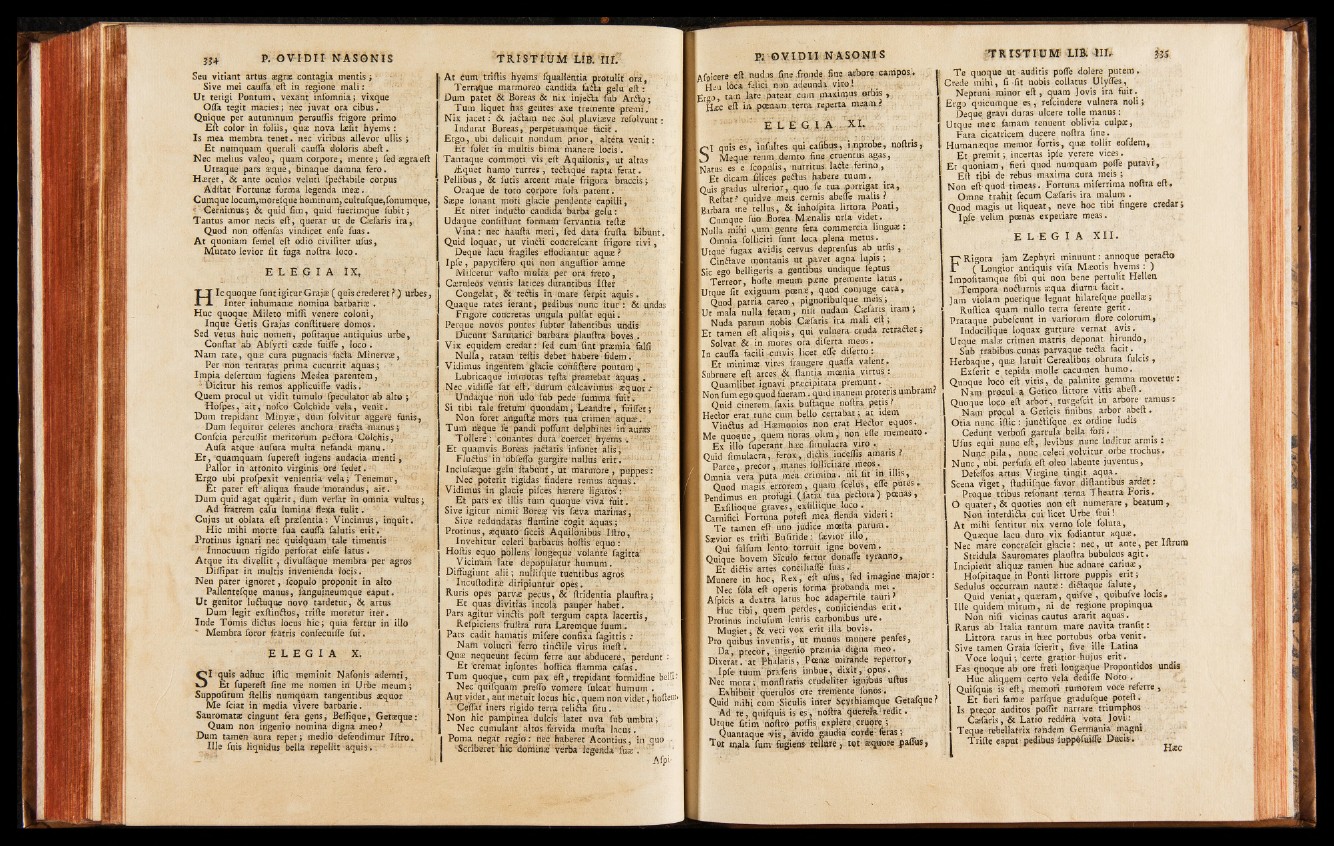 334 P. OVIDII NASONIS
Seu vitiant artus ægræ contagia mentis;
Sive mei cauſſa eſt in regione mali:
Ut tetigi Pontum, vexant inſomnia; vixque
Oſſa tegit macies; nec juvat ora cibus.
Quique per autumnum percuſſis frigore primo
Eſt color in foliis, quæ nova læſit hyems:
Is mea membra tenet. nec viribus allevor ullis;
Et numquam queruli cauſſa doloris abeſt.
Nec melius valeo, quam corpore, mente; ſed ægra eſt
Utraque pars æque, binaque damna fero.
Hæret, & ante oculos veluti ſpectabile corpus
Adſtat Fortunæ forma legenda meæ.
Cumque locum, moreſque hominum, cultuſque, ſonumque,
Cernimus; & quid ſim, quid fuerimque ſubit;
Tantus amor necis eſt, querar ut de Cæſaris ira,
Quod non offenſas vindicet enſe ſuas.
At quoniam ſemel eſt odio civiliter uſus,
Mutato levior ſit fuga noſtra loco.
ELEGIA IX.
HIc quoque ſunt igitur Grajæ (quis crederet?) urbes,
Inter inhumanæ nomina barbariæ.
Huc quoque Mileto miſſi venere coloni,
Inque Getis Grajas conſtituere domos.
Sed vetus huic nomen, poſitaque antiquius urbe,
Conſtat ab Abſyrti cæde fuiſſe, loco.
Nam rate, quæ cura pugnacis facta Minervæ,
Per non tentatas prima cucurrit aquas;
Impia deſertum fugiens Medea parentem,
Dicitur his remos applicuiſſe vadis.
Quem procul ut vidit tumulo ſpeculator ab alto;
Hoſpes, ait, noſco Colchide vela, venit.
Dum trepidant Minyæ, dum ſolvitur aggere funis,
Dum ſequitur celeres anchora tracta manus;
Conſcia percuſſit meritorum pectora Colchis,
Auſa atque auſura multa nefanda manu.
Et, quamquam ſupereſt ingens audacia menti,
Pallor in attonito virginis ore ſedet.
Ergo ubi proſpexit venientia vela; Tenemur,
Et pater eſt aliqua fraude morandus, ait.
Dum quid agat quærit, dum verſat in omnia vultus;
Ad fratrem caſu lumina flexa tulit.
Cujus ut oblata eſt præſentia: Vincimus, inquit.
Hic mihi morte ſua cauſſa ſalutis erit.
Protinus ignari nec quidquam tale timentis
Innocuum rigido perforat enſe latus.
Atque ita divellit, divulſaque membra per agros
Diſſipat in multis invenienda locis.
Neu pater ignoret, ſcopulo proponit in alto
Pallenteſque manus, ſanguineumque caput.
Ut genitor luctuque novo tardetur, & artus
Dum legit exſtinctos, triſte moretur iter.
Inde Tomis dictus locus hic; quia fertur in illo
Membra ſoror fratris conſecuiſſe ſui.
ELEGIA X.
SI quis adhuc iſtic meminit Naſonis ademti,
Et ſupereſt ſine me nomen in Urbe meum;
Suppoſitum ſtellis numquam tangentibus æquor
Me ſciat in media vivere barbarie.
Sauromatæ cingunt fera gens, Beſſique, Getæque:
Quam non ingenio nomina digna meo?
Dum tamen aura tepet; medio defendimur Iſtro.
Ille ſuis liquidus bella repellit aquis.
TRISTIUM LIB. III.
At cum triſtis hyems ſquallentia protulit ora,
Terraque marmoreo candida facta gelu eſt:
Dum patet & Boreas & nix injecta ſub Arcto;
Tum liquet has gentes axe tremente premi.
Nix jacet: & jactam nec Sol pluviæve reſolvunt:
Indurat Boreas, perpetuamque facit.
Ergo, ubi delicuit nondum prior, altera venit:
Et ſolet in multis bima manere locis.
Tantaque commoti vis eſt Aquilonis, ut altas
Æquet humo turres, tectaque rapta ferat.
Pellibus, & ſutis arcent male frigora braccis;
Oraque de toto corpore ſola patent.
Sæpe ſonant moti glacie pendente capilli,
Et nitet inducto candida barba gelu:
Udaque conſiſtunt formam ſervantia teſtæ
Vina: nec hauſta meri, ſed data fruſta bibunt.
Quid loquar, ut vincti concreſcant frigore rivi,
Deque lacu fragiles effodiantur aquæ?
Ipſe, papyrifero qui non anguſtior amne
Miſcetur vaſto multa per ora freto,
Cæruleos ventis latices durantibus Iſter
Congelat, & tectis in mare ſerpit aquis.
Quaque rates ierant, pedibus nunc itur: & undas
Frigore concretas ungula pulſat equi.
Perque novos pontes ſubter labentibus undis
Ducunt Sarmatici barbara plauſtra boves.
Vix equidem credar: ſed cum ſint præmia falſi
Nulla, ratam teſtis debet habere fidem.
Vidimus ingentem glacie conſiſtere pontum,
Lubricaque immotas teſta premebat aquas.
Nec vidiſſe ſat eſt. durum calcavimus æquor:
Undaque non udo ſub pede ſumma fuit.
Si tibi tale fretum quondam, Leandre, fuiſſet;
Non foret anguſtæ mors tua crimen aquæ.
Tum neque ſe pandi poſſunt delphines in auras
Tollere: conantes dura coercet hyems.
Et quamvis Boreas jactatis inſonet alis;
Fluctus in obſeſſo gurgite nullus erit.
Incluſæque gelu ſtabunt, ut marmore, puppes:
Nec poterit rigidas findere remus aquas.
Vidimus in glacie piſces hærere ligatos:
Et pars ex illis tum quoque viva fuit.
Sive igitur nimii Boreæ vis ſæva marinas;
Sive redundatas flumine cogit aquas;
Protinus, æquato ſiccis Aquilonibus Iſtro,
Invehitur celeri barbarus hoſtis equo:
Hoſtis equo pollens longeque volante ſagitta
Vicinam late depopulatur humum.
Diffugiunt alii; nulliſque tuentibus agros
Incuſtoditæ diripiuntur opes.
Ruris opes parvæ pecus, & ſtridentia plauſtra;
Et quas divitias incola pauper habet.
Pars agitur vinctis poſt tergum capta lacertis,
Reſpiciens fruſtra rura Laremque ſuum.
Pars cadit hamatis miſere confixa ſagittis:
Nam volucri ferro tinctile virus ineſt.
Quæ nequeunt ſecum ferre aut abducere, perdunt:
Et cremat inſontes hoſtica flamma caſas.
Tum quoque, cum pax eſt, trepidant formidine belli:
Nec quiſquam preſſo vomere ſulcat humum.
Aut videt, aut metuit locus hic, quem non videt, hoſtem.
Ceſſat iners rigido terra relicta ſitu.
Non hic pampinea dulcis latet uva ſub umbra;
Nec cumulant altos fervida muſta lacus.
Poma negat regio: nec haberet Acontius, in quo
Scriberet hic dominæ verba legenda ſuæ.
Aſpi-
P. OVIDII NASONIS
Aſpicere eſt nudos ſine fronde ſine arbore campos.
Heu loca felici non adeunda viro!
Ergo, tam late pateat cum maximus orbis,
Hæc eſt in pœnam terra reperta meam?
ELEGIA XI.
SI quis es, inſultes qui caſibus, improbe, noſtris,
Meque reum demto fine cruentus agas,
Natus es e ſcopulis, nutritus lacte ferino,
Et dicam ſilices pectus habere tuum.
Quis gradus ulterior, quo ſe tua porrigat ira,
Reſtat? quidve meis cernis abeſſe malis?
Barbara me tellus, & inhoſpita littora Ponti,
Cumque ſuo Borea Mænalis urſa videt.
Nulla mihi cum gente fera commercia linguæ:
Omnia ſolliciti ſunt loca plena metus.
Utque fugax avidis cervus deprenſus ab urſis,
Cinctave montanis ut pavet agna lupis;
Sic ego belligeris a gentibus undique ſeptus
Terreor, hoſte meum pæne premente latus.
Utque ſit exiguum pœnæ, quod conjuge cara,
Quod patria careo, pignoribuſque meis;
Ut mala nulla feram, niſi nudam Cæſaris iram;
Nuda parum nobis Cæſaris ira mali eſt;
Et tamen eſt aliquis, qui vulnera cruda retractet;
Solvat & in mores ora diſerta meos.
In cauſſa facili cuivis licet eſſe diſerto:
Et minimæ vires frangere quaſſa valent.
Subruere eſt arces & ſtantia mœnia virtus:
Quamlibet ignavi præcipitata premunt.
Non ſum ego quod fueram. quid inanem proteris umbram?
Quid cinerem ſaxis buſtaque noſtra petis?
Hector erat tunc cum bello certabat; at idem
Vinctus ad Hæmonios non erat Hector equos.
Me quoque, quem noras olim, non eſſe memento.
Ex illo ſuperant hæc ſimulacra viro.
Quid ſimulacra, ferox, dictis inceſſis amaris?
Parce, precor, manes ſollicitare meos.
Omnia vera puta mea crimina. nil ſit in illis,
Quod magis errorem, quam ſcelus, eſſe putes.
Pendimus en profugi (ſatia tua pectora) pœnas,
Exſilioque graves, exſiliique loco.
Carnifici Fortuna poteſt mea flenda videri:
Te tamen eſt uno judice mœſta parum.
Sævior es triſti Buſiride: ſævior illo,
Qui falſum lento torruit igne bovem.
Quique bovem Siculo fertur donaſſe tyranno,
Et dictis artes conciliaſſe ſuas.
Munere in hoc, Rex, eſt uſus, ſed imagine major:
Nec ſola eſt operis forma probanda mei.
Aſpicis a dextra latus hoc adapertile tauri?
Huc tibi, quem perdes, conjiciendus erit.
Protinus incluſum lentis carbonibus ure.
Mugiet, & veri vox erit illa bovis.
Pro quibus inventis, ut munus munere penſes,
Da, precor, ingenio præmia digna meo.
Dixerat. at Phalaris, Pœnæ mirande repertor,
Ipſe tuum præſens imbue, dixit, opus.
Nec mora; monſtratis crudeliter ignibus uſtus
Exhibuit querulos ore tremente ſonos.
Quid mihi cum Siculis inter Scythiamque Getaſque?
Ad te, quiſquis is es, noſtra querela redit.
Utque ſitim noſtro poſſis explere cruore;
Quantaque vis, avido gaudia corde feras;
Tot mala ſum fugiens tellure, tot æquore paſſus,
TRISTIUM LIB. III. 335
Te quoque ut auditis poſſe dolere putem.
Crede mihi, ſi ſit nobis collatus Ulyſſes,
Neptuni minor eſt, quam Jovis ira fuit.
Ergo quicumque es, reſcindere vulnera noli;
Deque gravi duras ulcere tolle manus:
Utque meæ famam tenuent oblivia culpæ,
Fata cicatricem ducere noſtra ſine.
Humanæque memor ſortis, quæ tollit eoſdem,
Et premit; incertas ipſe verere vices.
Et quoniam, fieri quod numquam poſſe putavi,
Eſt tibi de rebus maxima cura meis;
Non eſt quod timeas. Fortuna miſerrima noſtra eſt.
Omne trahit ſecum Cæſaris ira malum.
Quod magis ut liqueat, neve hoc tibi fingere credar;
Ipſe velim pœnas experiare meas.
ELEGIA XII.
FRigora jam Zephyri minuunt: annoque peracto
(Longior antiquis viſa Mæotis hyems:)
Impoſitamque ſibi qui non bene pertulit Hellen
Tempora nocturnis æqua diurna facit.
Jam violam puerique legunt hilareſque puellæ;
Ruſtica quam nullo terra ferente gerit.
Prataque pubeſcunt in variorum flore colorum,
Indocilique loquax gutture vernat avis.
Utque malæ crimen matris deponat hirundo,
Sub trabibus cunas parvaque tecta facit.
Herbaque, quæ latuit Cerealibus obruta ſulcis,
Exſerit e tepida molle cacumen humo.
Quoque loco eſt vitis, de palmite gemma movetur:
Nam procul a Getico littore vitis abeſt.
Quoque loco eſt arbor, turgeſcit in arbore ramus:
Nam procul a Geticis finibus arbor abeſt.
Otia nunc iſtic: junctiſque ex ordine ludis
Cedunt verboſi garrula bella fori.
Uſus equi nunc eſt, levibus nunc luditur armis:
Nunc pila, nunc celeri volvitur orbe trochus.
Nunc, ubi perfuſa eſt oleo labente juventus,
Defeſſos artus Virgine tingit aqua.
Scena viget, ſtudiiſque favor diſtantibus ardet:
Proque tribus reſonant terna Theatra Foris.
O quater, & quoties non eſt numerare, beatum,
Non interdicta cui licet Urbe frui!
At mihi ſentitur nix verno ſole ſoluta,
Quæque lacu duro vix fodiantur aquæ.
Nec mare concreſcit glacie: nec, ut ante, per Iſtrum
Stridula Sauromates plauſtra bubulcus agit.
Incipient aliquæ tamen huc adnare carinæ,
Hoſpitaque in Ponti littore puppis erit;
Sedulus occurram nautæ: dictaque ſalute,
Quid veniat, quæram, quiſve, quibuſve locis.
Ille quidem mirum, ni de regione propinqua
Non niſi vicinas cautus ararit aquas.
Rarus ab Italia tantum mare navita tranſit:
Littora rarus in hæc portubus orba venit.
Sive tamen Graja ſcierit, ſive ille Latina
Voce loqui; certe gratior hujus erit.
Fas quoque ab ore freti longæque Propontidos undis
Huc aliquem certo vela dediſſe Noto.
Quiſquis is eſt, memori rumorem voce referre,
Et fieri famæ parſque graduſque poteſt.
Is precor auditos poſſit narrare triumphos
Cæſaris, & Latio reddita vota Jovi:
Teque rebellatrix tandem Germania magni
Triſte caput pedibus ſuppoſuiſſe Ducis.
Hæc